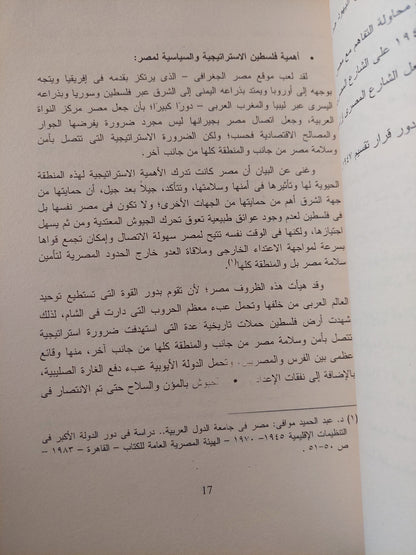 محاولة التفاهم مع
١٩ على الشارع
جعل الشارع المصرى
دور قرار تقسيم
• أهمية فلسطين الاستراتيجية والسياسية لمصر:
لقد لعب موقع مصر الجغرافى – الذى يرتكز بقدمه فى إفريقيا ويتجه
بوجهه إلى أوروبا ويمتد بذراعه اليمنى إلى الشرق عبر فلسطين وسوريا وبذراعه
اليسرى عبر ليبيا والمغرب العربى – دورًا كبيرًا؛ بأن جعل مصر مركز النواة
العربية، وجعل اتصال مصر بجيرانها ليس مجرد ضرورة يفرضها الجوار
والمصالح الاقتصادية فحسب؛ ولكن الضرورة الاستراتيجية التى تتصل بأمن
وسلامة مصر من جانب والمنطقة كلها من جانب آخر.
وغنى عن البيان أن مصر كانت تدرك الأهمية الاستراتيجية لهذه المنطقة
الحيوية لها وتأثيرها فى أمنها وسلامتها، وتتأكد، جيلاً بعد جيل، أن حمايتها من
جهة الشرق أهم من حمايتها من الجهات الأخرى؛ ولا تكون فى مصر نفسها بل
فى فلسطين لعدم وجود عوائق طبيعية تعوق تحرك الجيوش المعتدية ومن ثم يسهل
اجتيازها، ولكنها فى الوقت نفسه تتيح لمصر سهولة الاتصال وإمكان تجمع قواها
بسرعة لمواجهة الاعتداء الخارجى وملاقاة العدو خارج الحدود المصرية لتأمين
سلامة مصر بل والمنطقة كلها(١).
وقد هيأت هذه الظروف مصر؛ لأن تقوم بدور القوة التى تستطيع توحيد
العالم العربى من خلفها وتحمل عبء معظم الحروب التى دارت فى الشام، لذلك
شهدت أرض فلسطين حملات تاريخية عدة التى استهدفت ضرورة استراتيجية
تتصل بأمن وسلامة مصر من جانب والمنطقة كلها من جانب آخر، منها وقائع
عظمى بين الفرس والمصريين، وتحمل الدولة الأيوبية عبء دفع الغارة الصليبية،
بالإضافة إلى نفقات الإعداد الجيوش بالمؤن والسلاح حتى تم الانتصار فى
(١) د. عبد الحميد موافى: مصر فى جامعة الدول العربية.. دراسة فى دور الدولة الأكبر فى
التنظيمات الإقليمية ١٩٤٥ – ١٩٧٠ – الهيئة المصرية العامة للكتاب – القاهرة – ١٩٨٣ –
ص ٥٠-٥١ .
17